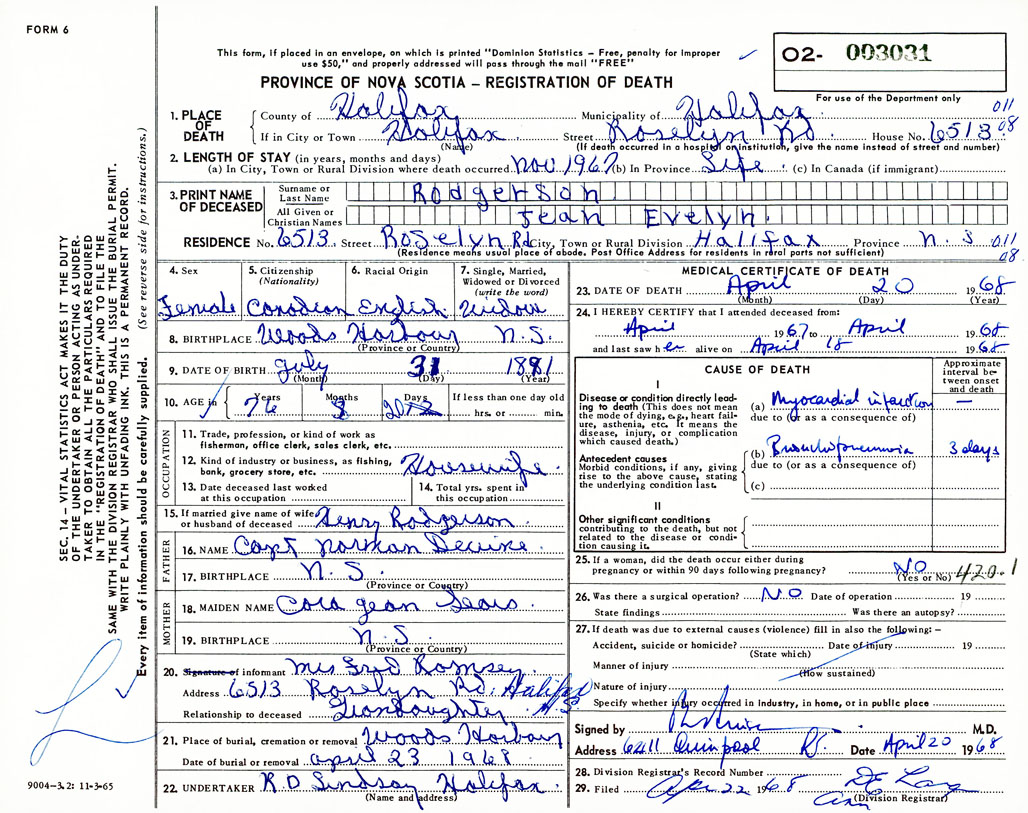 FORM 6
This form, if placed in an envelope, on which is printed "Dominion Statistics – Free, penalty for improper
use $50," and properly addressed will pass through the mail "FREE"
O2- 003031
PROVINCE OF NOVA SCOTIA – REGISTRATION OF DEATH
For use of the Department only
011
08
1. PLACE OF DEATH
County of Halifax Municipality of Halifax
If in City or Town Halifax Street Roselyn Rd. House No. 6513
(Name) (If death occurred in a hospital or institution, give the name instead of street and number)
2. LENGTH OF STAY (in years, months and days)
(a) In City, Town or Rural Division where death occurred Nov 1967 (b) In Province Life (c) In Canada (if immigrant)
3. PRINT NAME OF DECEASED
Surname or Last Name Rodgerson
All Given or Christian Names Jean Evelyn
RESIDENCE No. 6513 Street Roselyn Rd City, Town or Rural Division Halifax Province N. S. 011
08
(Residence means usual place of abode. Post Office Address for residents in rural parts not sufficient)
4. Sex 5. Citizenship (Nationality) 6. Racial Origin 7. Single, Married, Widowed or Divorced (write the word)
Female Canadian English Widow
8. BIRTHPLACE Woods Harbour N.S.
(Province or Country)
9. DATE OF BIRTH July 31 1891
(Month) (Day) (Year)
10. AGE in Years Months Days If less than one day old
76 8 20 hrs. or min.
OCCUPATION
11. Trade, profession, or kind of work as
fisherman, office clerk, sales clerk, etc.
12. Kind of industry or business, as fishing,
bank, grocery store, etc. Housewife
13. Date deceased last worked
at this occupation
14. Total yrs. spent in
this occupation
15. If married give name of wife
or husband of deceased Henry Rodgerson
FATHER
16. NAME Capt Norman Devine
17. BIRTHPLACE N.S.
(Province or Country)
MOTHER
18. MAIDEN NAME Cora Jean Sears
19. BIRTHPLACE N.S.
(Province or Country)
20. Signature of informant Mrs Fred Romsey
Address 6513 Roselyn Rd. Halifax N.S.
Relationship to deceased Grandaughter
21. Place of burial, cremation or removal Woods Harbour
Date of burial or removal April 23 1968
22. UNDERTAKER R D Lindsay Halifax
(Name and address)
MEDICAL CERTIFICATE OF DEATH
23. DATE OF DEATH April 20 1968
(Month) (Day) (Year)
24. I HEREBY CERTIFY that I attended deceased from:
April 1967 to April 1968
and last saw her alive on April 18 1968
CAUSE OF DEATH
Approximate interval between onset and death
I
Disease or condition directly leading
to death (This does not mean
the mode of dying, e.g., heart failure,
asthenia, etc. It means the
disease, injury, or complication
which caused death.)
(a) Myocardial infarction —
due to (or as a consequence of)
Antecedent causes
Morbid conditions, if any, giving
rise to the above cause, stating
the underlying condition last.
(b) Bronchopneumonia 3 days
due to (or as a consequence of)
(c)
II
Other significant conditions
contributing to the death, but not
related to the disease or condition
causing it.
25. If a woman, did the death occur either during
pregnancy or within 90 days following pregnancy? NO
(Yes or No) 420.1
26. Was there a surgical operation? NO Date of operation 19
State findings Was there an autopsy?
27. If death was due to external causes (violence) fill in also the following: –
Accident, suicide or homicide? Date of injury 19
(State which)
Manner of injury
(How sustained)
Nature of injury
Specify whether injury occurred in Industry, in home, or in public place
Signed by M.D.
Address 6411 Quinpool Rd. Date April 20 1968
28. Division Registrar's Record Number
29. Filed Apr 22 1968
(Division Registrar)
SEC. 14 – VITAL STATISTICS ACT MAKES IT THE DUTY
OF THE UNDERTAKER OR PERSON ACTING AS UNDERTAKER
TO OBTAIN ALL THE PARTICULARS REQUIRED
IN THE "REGISTRATION OF DEATH" AND TO FILE THE
SAME WITH THE DIVISION REGISTRAR WHO SHALL ISSUE THE BURIAL PERMIT.
WRITE PLAINLY WITH UNFADING INK. THIS IS A PERMANENT RECORD.
Every item of information should be carefully supplied. (See reverse side for instructions.)
9004-3.2: 11-3-65